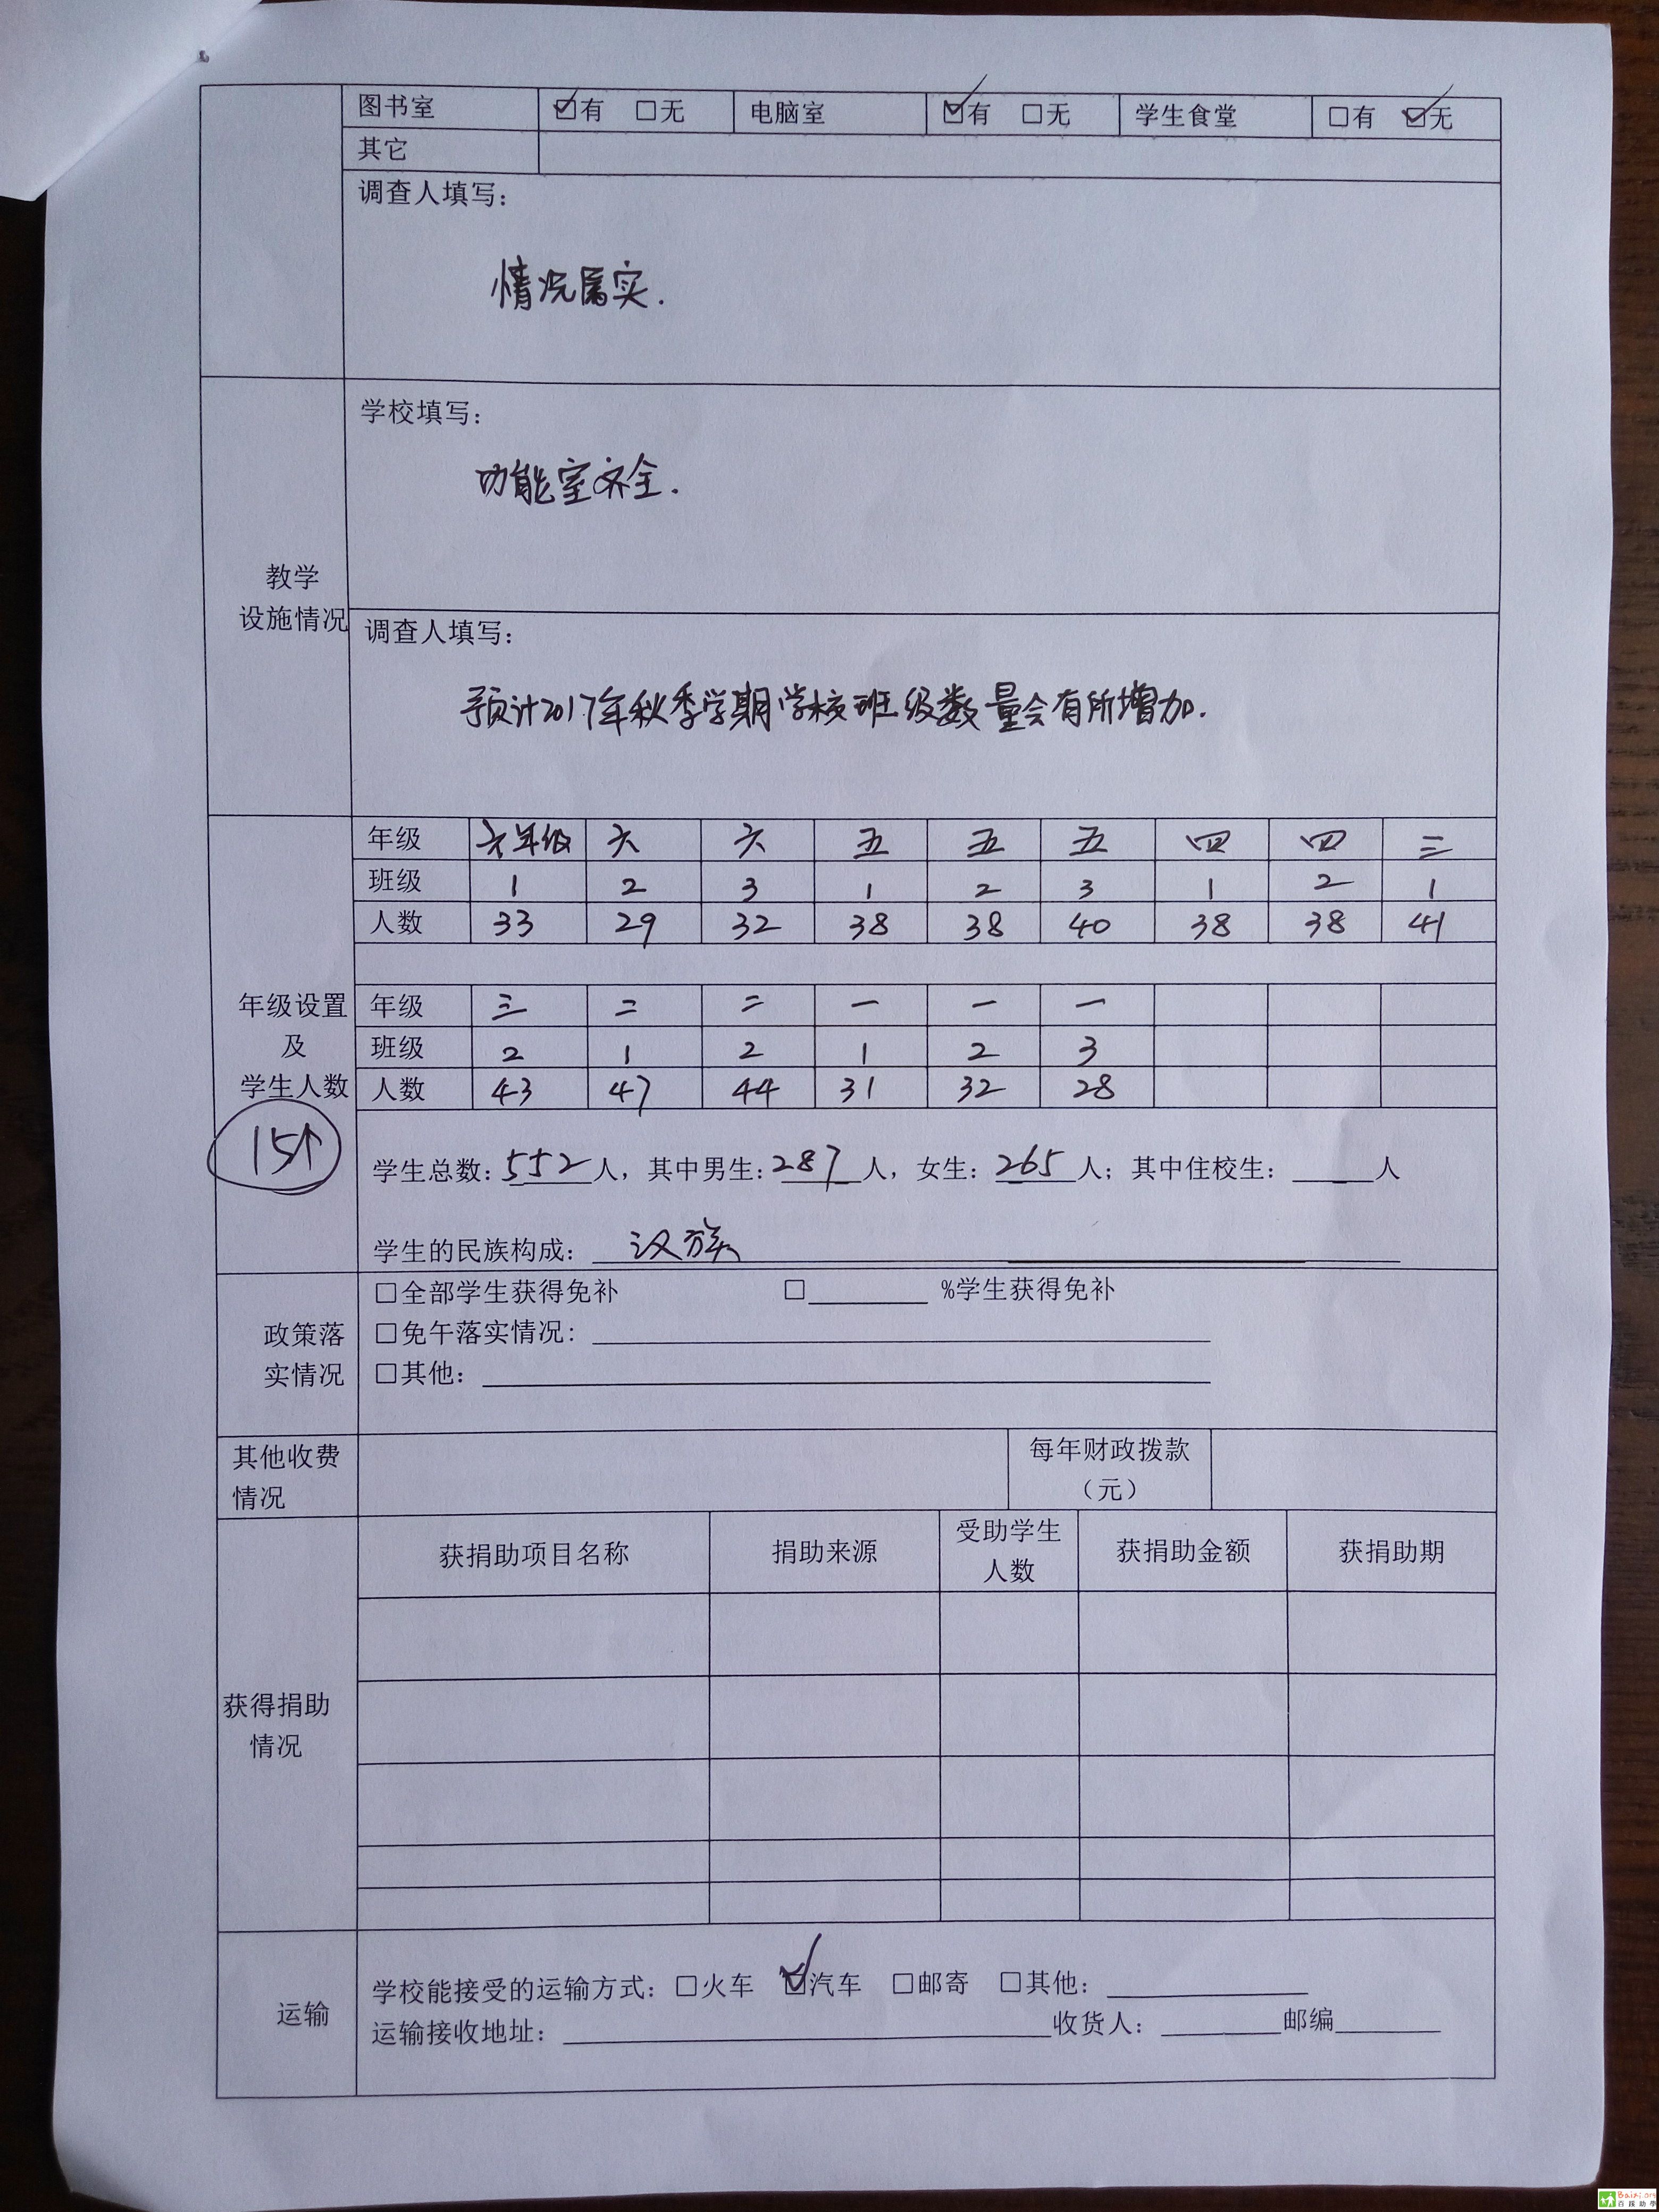 图书室 ☑有 □无 电脑室 ☑有 □无 学生食堂 □有 ☑无
其它
调查人填写：
情况属实.
教学
设施情况
学校填写：
功能室齐全.
调查人填写：
预计2017年秋季学期学校班级数量会有所增加.
年级设置
及
学生人数
15个
年级 六年级 六 六 五 五 五 四 四 三
班级 1 2 3 1 2 3 1 2 1
人数 33 29 32 38 38 40 38 38 41
年级 三 二 二 一 一 一
班级 2 1 2 1 2 3
人数 43 47 44 31 32 28
学生总数：552人，其中男生：287人，女生：265人；其中住校生：______人
学生的民族构成：汉族
政策落
实情况
□全部学生获得免补 □________ %学生获得免补
□免午落实情况：
□其他：
其他收费
情况
每年财政拨款
（元）
获得捐助
情况
获捐助项目名称 捐助来源 受助学生人数 获捐助金额 获捐助期
运输
学校能接受的运输方式：□火车 ☑汽车 □邮寄 □其他：
运输接收地址：________收货人：________邮编________
Baixi.org
百蹊助學